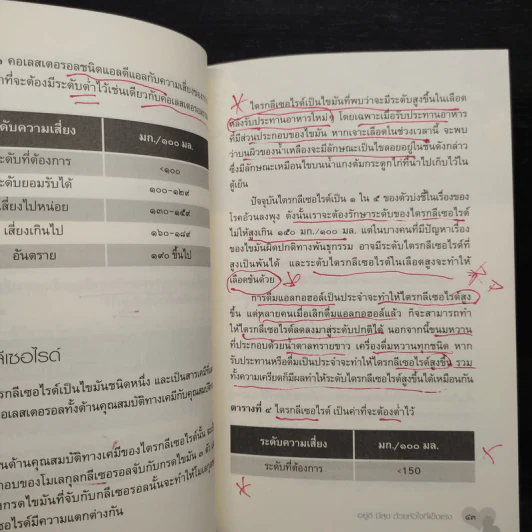 คอเลสเตอรอลชนิดแอลดีแอลกับความเสี่ยงของ
ที่จะต้องมีระดับต่ำไว้เช่นเดียวกับคอเลสเตอรอล
ดับความเสี่ยง มก./๑๐๐ มล.
ระดับที่ต้องการ <๑๐๐
ระดับยอมรับได้ ๑๐๐-๑๒๙
เสี่ยงไปหน่อย ๑๓๐-๑๕๙
เสี่ยงเกินไป ๑๖๐-๑๘๙
อันตราย ๑๙๐ ขึ้นไป
ลีเซอไรด์
ตรกลีเซอไรด์เป็นไขมันชนิดหนึ่ง และเป็นสารเคมีที่
คอเลสเตอรอลทั้งด้านคุณสมบัติทางเคมีกับคุณสมบัติ
นด้านคุณสมบัติทางเคมีของไตรกลีเซอไรด์นั้น
กอบของโมเลกุลกลีเซอรอลจับกับกรดไขมัน ๓ ตัว
กรดไขมันที่จับกับกลีเซอรอลนั้นจะทำให้โมเลกุล
เซอไรด์มีความแตกต่างกัน
ไตรกลีเซอไรด์เป็นไขมันที่พบว่าจะมีระดับสูงขึ้นในเลือด
หลังรับประทานอาหารใหม่ๆ โดยเฉพาะเมื่อรับประทานอาหาร
ที่มีส่วนประกอบของไขมัน หากเจาะเลือดในช่วงเวลานี้ จะพบ
ว่าบนผิวของน้ำเหลืองจะมีลักษณะเป็นไขลอยอยู่ในชั้นดังกล่าว
ซึ่งมีลักษณะเหมือนไขบนน้ำแกงต้มกระดูกไก่ที่นำไปเก็บไว้ใน
ตู้เย็น
ปัจจุบันไตรกลีเซอไรด์เป็น ๑ ใน ๕ ของตัวบ่งชี้ในเรื่องของ
โรคอ้วนลงพุง ดังนั้นเราจะต้องรักษาระดับของไตรกลีเซอไรด์
ไม่ให้สูงเกิน ๑๕๐ มก./๑๐๐ มล. แต่ในบางคนที่มีปัญหาเรื่อง
ของไขมันผิดปกติทางพันธุกรรม อาจมีระดับไตรกลีเซอไรด์ที่
สูงเป็นพันได้ และระดับไตรกลีเซอไรด์ในเลือดสูงจะทำให้
เลือดข้นด้วย
การดื่มแอลกอฮอล์เป็นประจำจะทำให้ไตรกลีเซอไรด์สูง
ขึ้น แต่หลายคนเมื่อเลิกดื่มแอลกอฮอล์แล้ว ก็จะสามารถทำ
ให้ไตรกลีเซอไรด์ลดลงมาสู่ระดับปกติได้ นอกจากนี้ขนมหวาน
ที่ประกอบด้วยน้ำตาลทรายขาว เครื่องดื่มหวานทุกชนิด หาก
รับประทานหรือดื่มเป็นประจำจะทำให้ไตรกลีเซอไรด์สูงขึ้น รวม
ทั้งความเครียดก็มีผลทำให้ระดับไตรกลีเซอไรด์สูงขึ้นได้เหมือนกัน
ตารางที่ ๔ ไตรกลีเซอไรด์ เป็นค่าที่จะต้องต่ำไว้
ระดับความเสี่ยง มก./๑๐๐ มล.
ระดับที่ต้องการ <150
อยู่ดี มีสุข ด้วยหัวใจที่แข็งแรง ๔๓